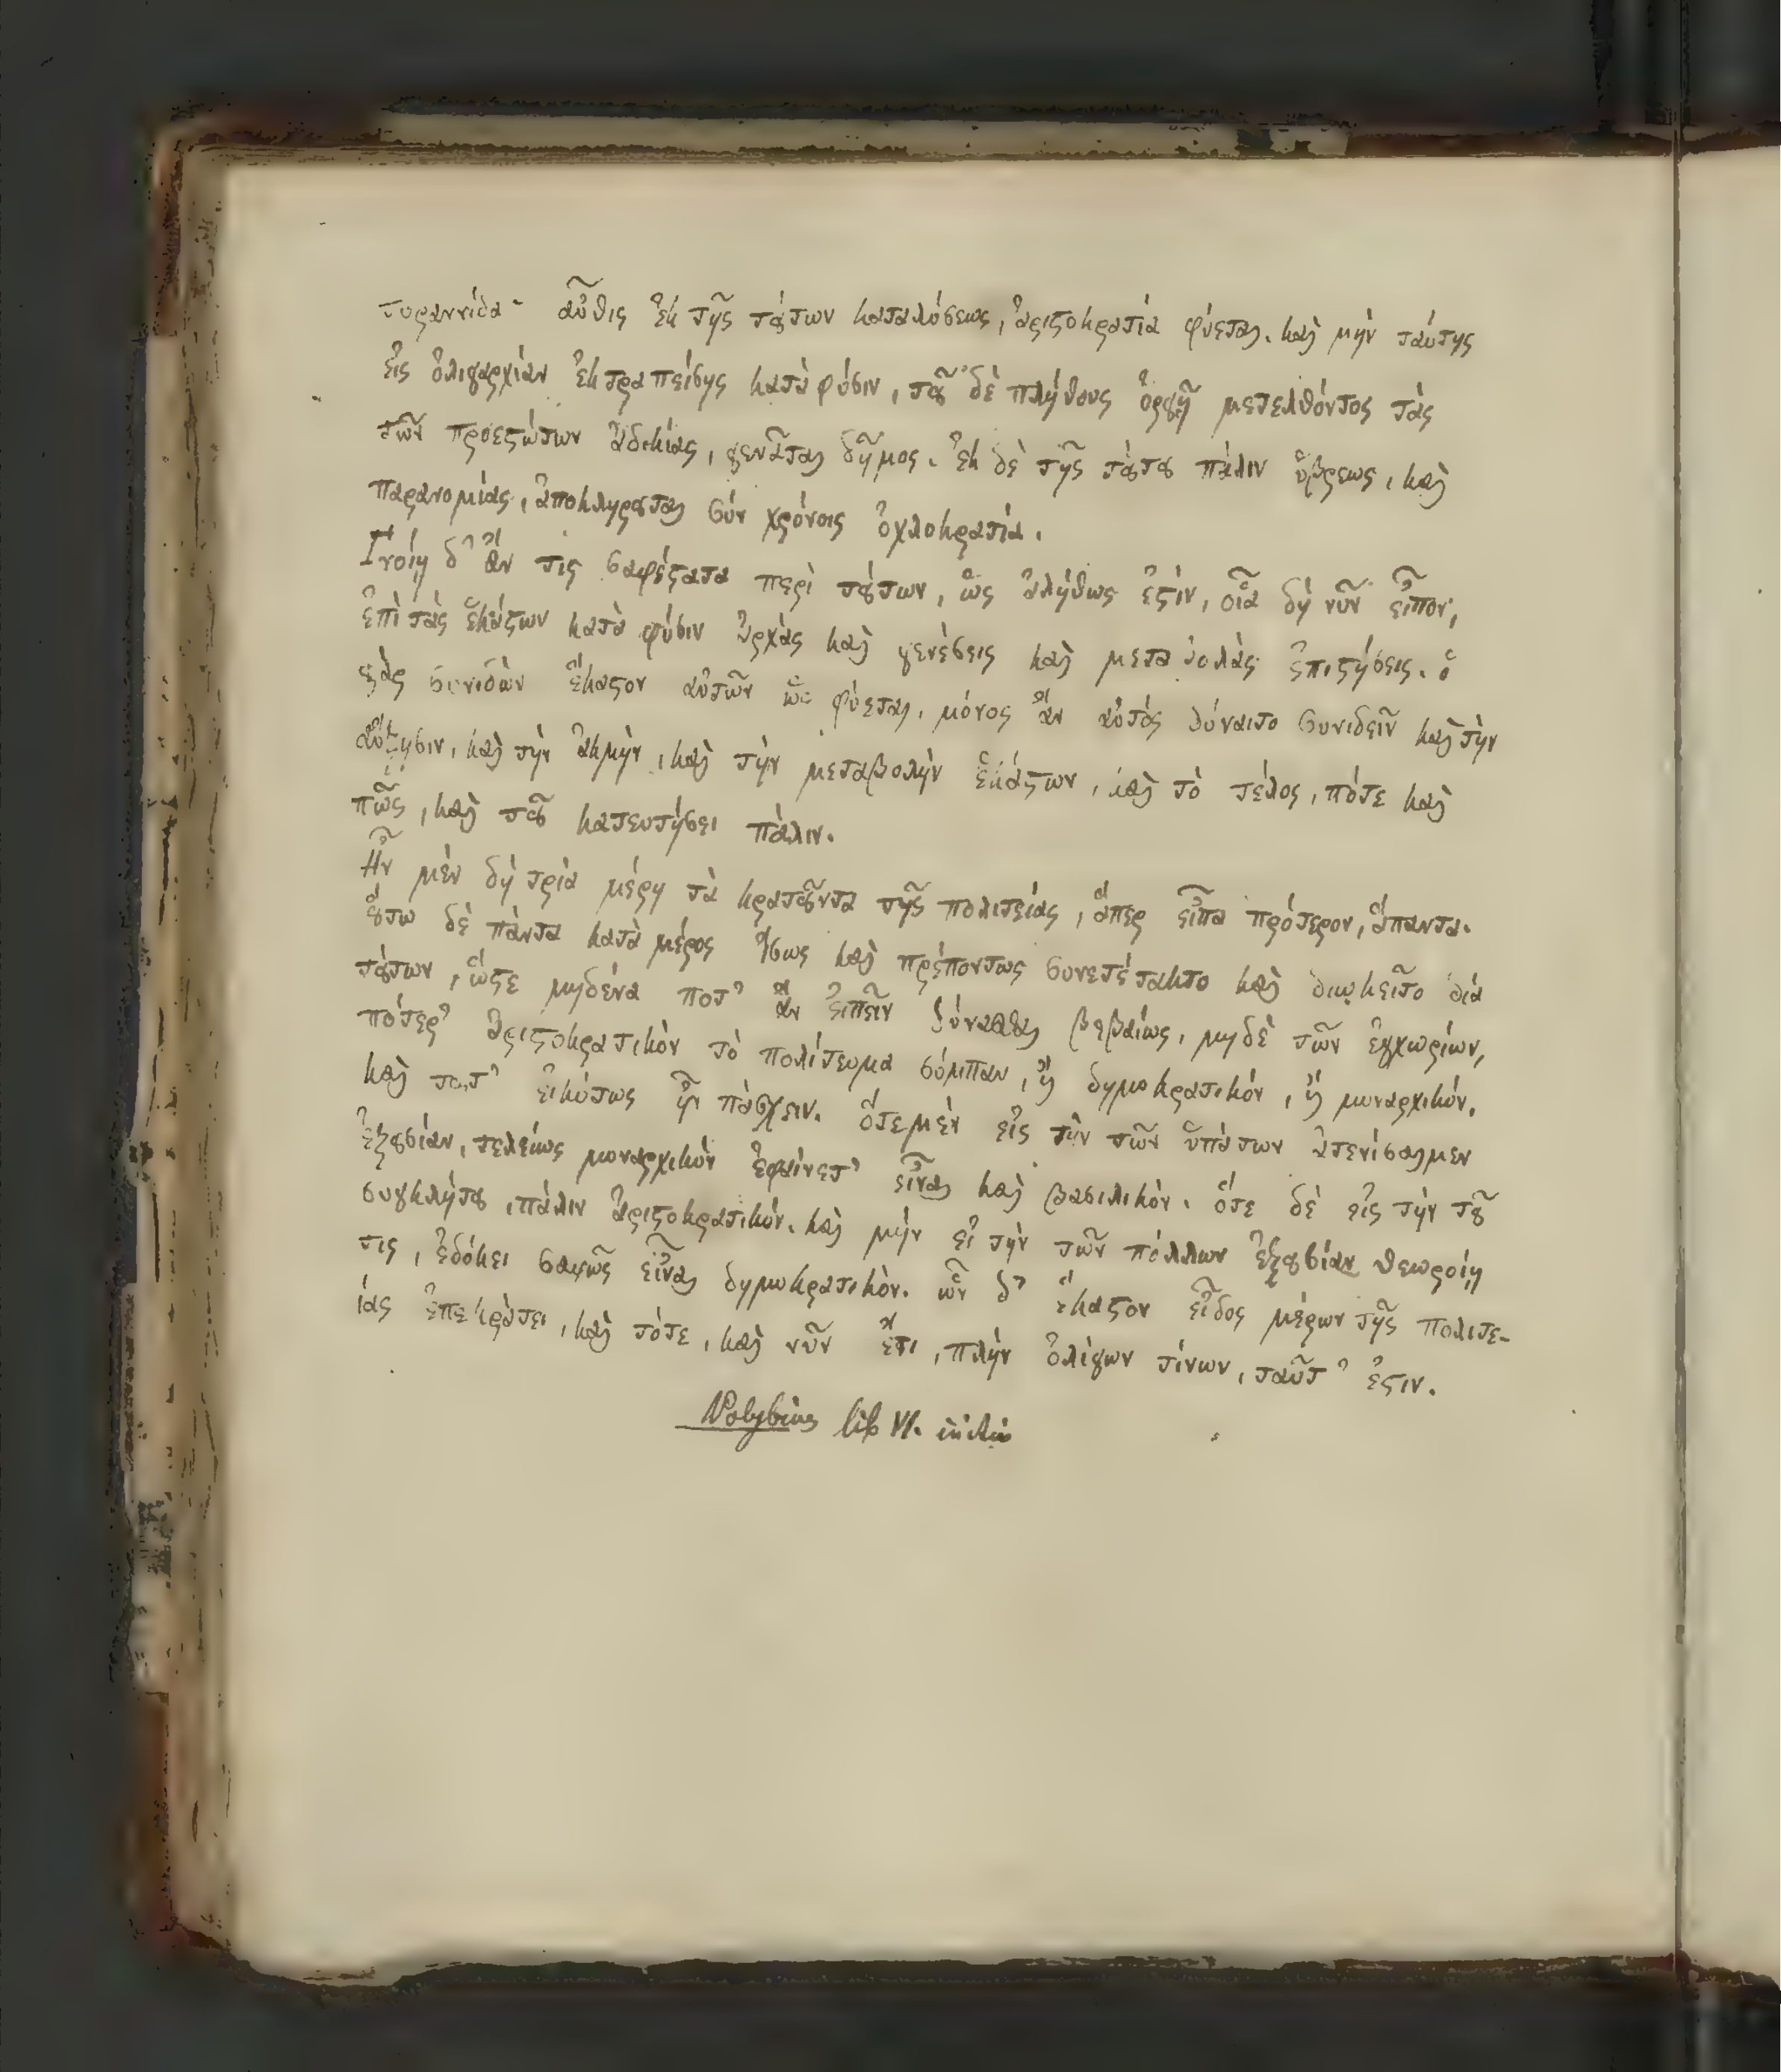 τυραννίδα· αὖθις ἐκ τῆς τούτων καταλύσεως, ἀριστοκρατία φύεται. καὶ μὴν ταύτης
εἰς ὀλιγαρχίαν ἐκτραπείσης κατὰ φύσιν, τοῦ δὲ πλήθους ὀργῇ μετελθόντος τὰς
τῶν προεστώτων ἀδικίας, γεννᾶται δῆμος. ἐκ δὲ τῆς τούτου πάλιν ὕβρεως, καὶ
παρανομίας, ἀποπληροῦται σὺν χρόνοις ὀχλοκρατία.
Γνοίη δ' ἄν τις σαφέστατα περὶ τούτων, ὡς ἀληθῶς ἐστίν, οἷα δὴ νῦν εἶπον,
ἐπὶ τὰς ἑκάστων κατὰ φύσιν ἀρχὰς καὶ γενέσεις καὶ μεταβολὰς ἐπιστήσεις. ὁ
γὰρ συνιδὼν ἕκαστον αὐτῶν ὡς φύεται, μόνος ἂν αὐτὸς δύναιτο συνιδεῖν καὶ τὴν
αὔξησιν, καὶ τὴν ἀκμὴν, καὶ τὴν μεταβολὴν ἑκάστων, καὶ τὸ τέλος, πότε καὶ
πῶς, καὶ τοῦ κατευτήσει πάλιν.
Ἦν μὲν δὴ τρία μέρη τὰ κρατοῦντα τῆς πολιτείας, ἅπερ εἶπα πρότερον, ἅπαντα.
οὕτω δὲ πάντα κατὰ μέρος ἴσως καὶ πρέποντως συνετέτακτο καὶ διῳκεῖτο διὰ
τούτων, ὥστε μηδένα ποτ' ἂν εἰπεῖν δύνασθαι βεβαίως, μηδὲ τῶν ἐγχωρίων,
πότερ' ἀριστοκρατικὸν τὸ πολίτευμα σύμπαν, ἢ δημοκρατικόν, ἢ μοναρχικόν.
καὶ τοῦτ' εἰκότως ἦν πάσχειν. ὅτε μὲν εἰς τὴν τῶν ὑπάτων ἀτενίσαιμεν
ἐξουσίαν, τελείως μοναρχικὸν ἐφαίνετ' εἶναι καὶ βασιλικόν. ὅτε δὲ εἰς τὴν τοῦ
συγκλήτου, πάλιν ἀριστοκρατικόν. καὶ μὴν εἰ τὴν τῶν πόλλων ἐξουσίαν θεωροίη
τις, ἐδόκει σαφῶς εἶναι δημοκρατικόν. ὧν δ' ἕκαστον εἶδος μέρων τῆς πολιτε-
ίας ἐπεκράτει, καὶ τότε, καὶ νῦν ἔτι, πλὴν ὀλίγων τίνων, ταῦτ' ἔστιν.
Polybius lib VI. initio